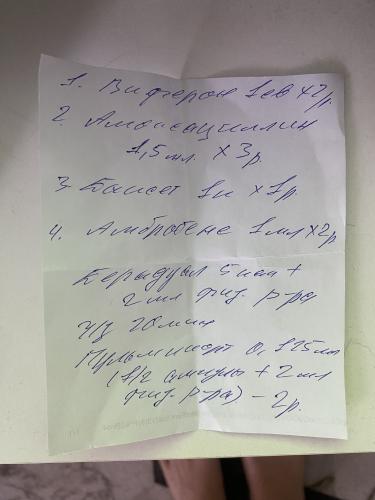 1. Виферон 1св х 2р.
2. Амоксациллин
1,5мл. х 3р.
3. Баксет 1п х 1р.
4. Амбробене 1мл х 2р
Беродуал 5 кап +
2 мл физ. р-ра
ч/з 20 мин
Пульмикорт 0,125мг
(1/2 ампулы + 2 мл
физ. р-ра) - 2р.